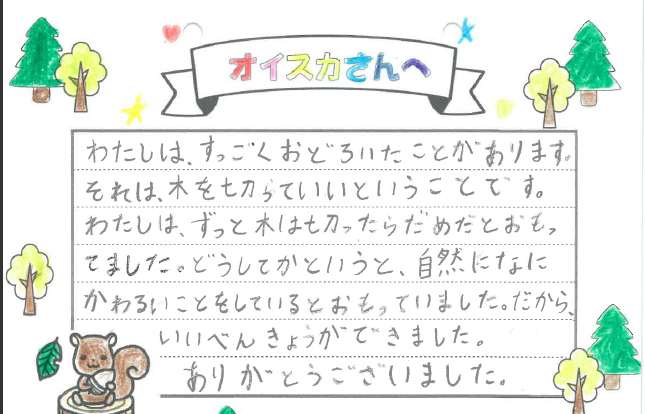 オイスカさんへ
わたしは、すっごくおどろいたことがあります。
それは、木を切っていいということです。
わたしは、ずっと木は切ったらだめだとおもっ
てました。どうしてかというと、自然になに
かわるいことをしているとおもっていました。だから、
いいべんきょうができました。
ありがとうございました。